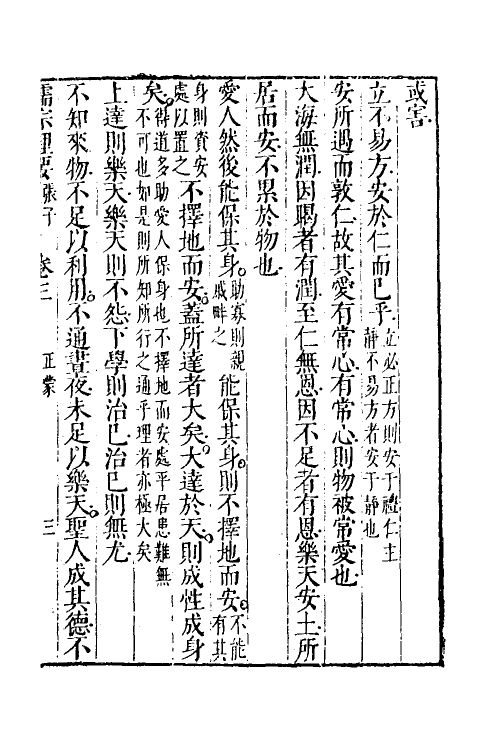 或害
立不易方安於仁而已乎立必正方則安于禮仁主靜不易方者安于靜也
安所遇而敦仁故其愛有常心有常心則物被常愛也
大海無潤因暍者有潤至仁無恩因不足者有恩樂天安土所
居而安不累於物也
愛人然後能保其身助寡則親戚畔之能保其身則不擇地而安不能有其
身則資安處以置之不擇地而安蓋所達者大矣大達於天則成性成身
矣得道多助愛人保身也不擇地而安處平居患難無不可也如是則所知所行之通乎理者亦極大矣
上達則樂天樂天則不怨下學則治己治己則無尤
不知來物不足以利用不通晝夜未足以樂天聖人成其德不
儒宗理要 張子 卷三 正蒙 三